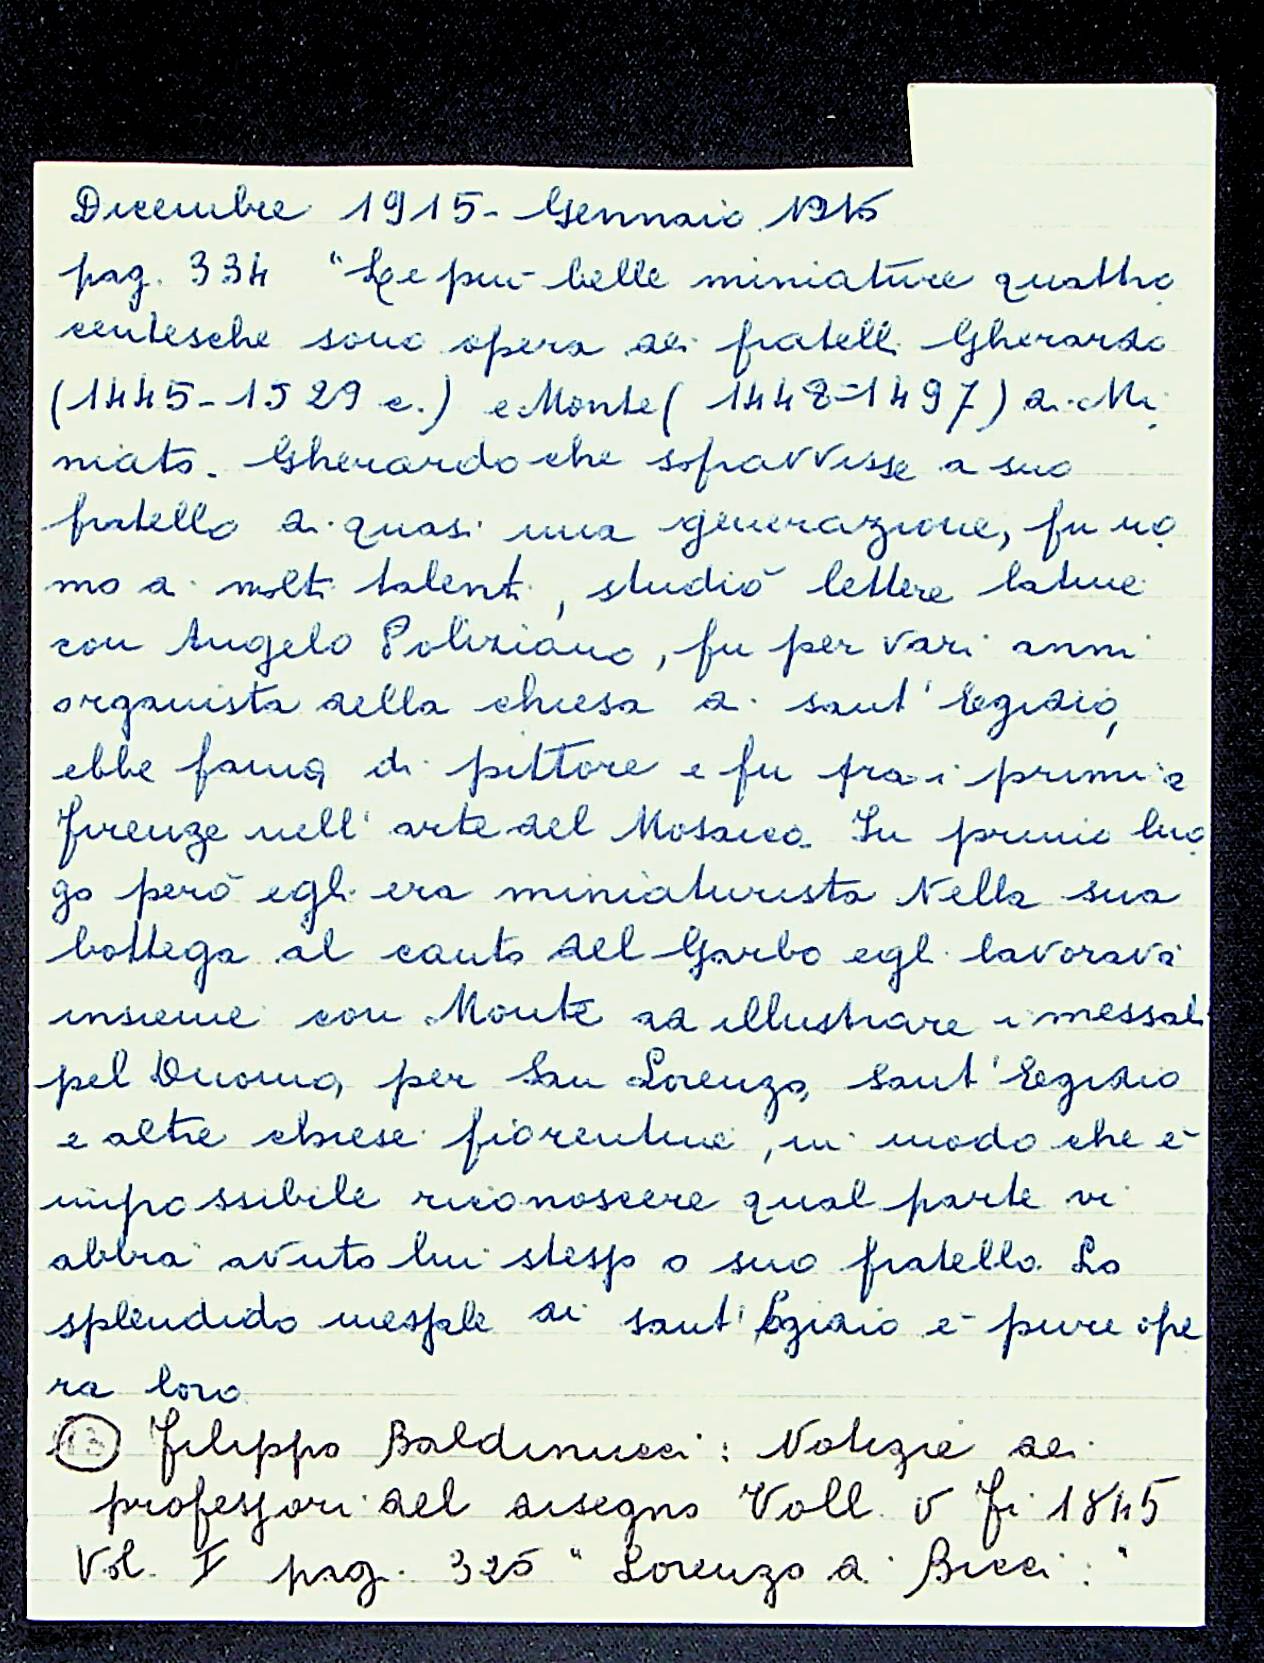 Dicembre 1915 - Gennaio 1915
pag. 334 "Le più belle miniature quattro
centesche sono opera dei fratelli Gherardo
(1445-1529 c.) e Monte (1448-1497) di Mi
niato. Gherardo che sopravvisse a suo
fratello di quasi una generazione, fu uo
mo di molti talenti, studiò lettere latine
con Angelo Poliziano, fu per vari anni
organista della chiesa di sant'Egidio,
ebbe fama di pittore e fu fra i primi a
Firenze nell'arte del Mosaico. In primo luo
go però egli era miniaturista Nella sua
bottega al canto del Garbo egli lavorava
insieme con Monte ad illustrare i messali
pel Duomo, per San Lorenzo, Sant'Egidio
e altre chiese fiorentine, in modo che è
impossibile riconoscere qual parte vi
abbia avuto lui stesso o suo fratello. Lo
splendido messale di sant'Egidio è pure ope
ra loro
13 Filippo Baldinucci: Notizie dei
professori del disegno Voll. V Fi 1845
Vol. I pag. 325 "Lorenzo di Bicci:"